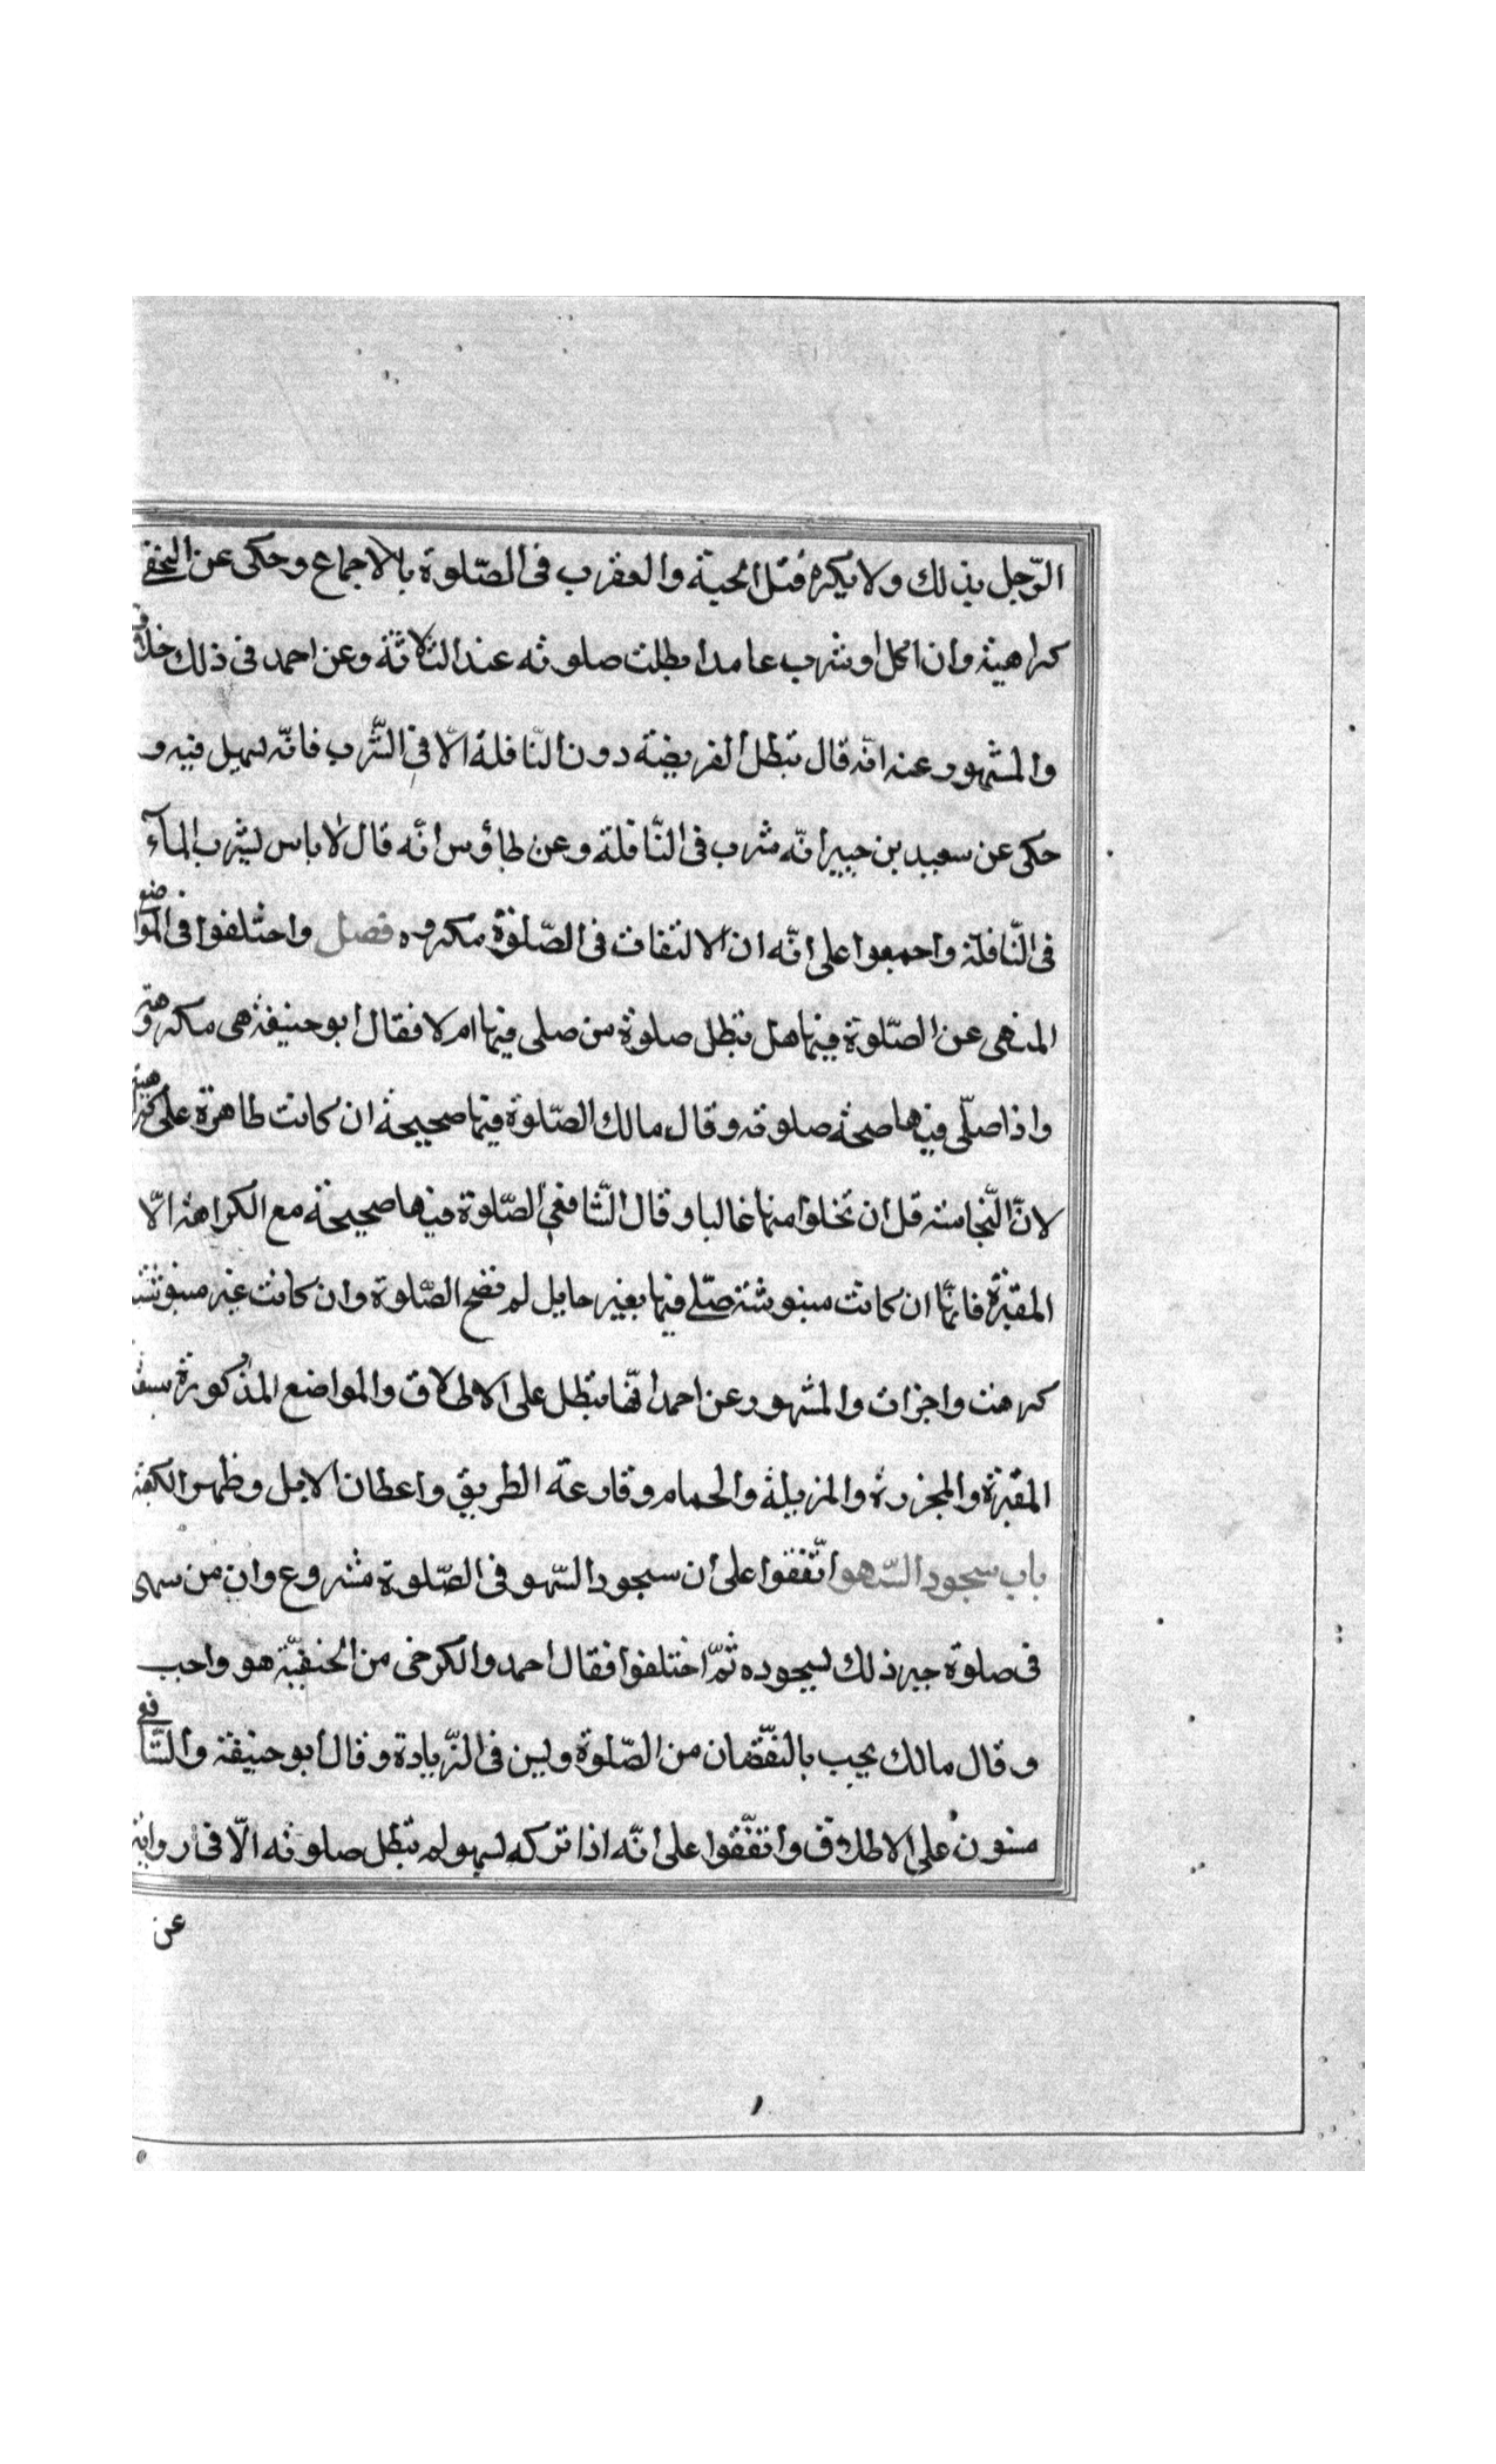 الرّجل بذلك ولا يكره قتل الحية والعقرب فى الصّلوة بالاجماع وحكى عن النخعى
كراهيته وان اكل او شرب عامدا بطلت صلوته عند الثلاثة وعن احمد فى ذلك خلاف
والمشهور عنه انّه قال تبطل الفريضة دون النّافلة الّا فى الشّرب فانّه سهيل فيه و
حكى عن سعيد بن جبير انّه شرب فى النّافلة وعن طاؤس انّه قال لا باس بشرب الماء
فى النّافلة واجمعوا على انّه ان الالتفات فى الصّلوة مكروه فصل واختلفوا فى المواضع
المنهى عن الصّلوة فيها هل تبطل صلوة من صلى فيها ام لا فقال ابو حنيفة هى مكروهة
واذا صلّى فيها صحة صلوته وقال مالك الصّلوة فيها صحيحة ان كانت طاهرة على كراهية
لانّ النّجاسة قل ان تخلوا منها غالبا وقال الشّافعى الصّلوة فيها صحيحة مع الكراهة الّا
المقبرة فانّها ان كانت منبوشة صلّى فيها بغير حايل لم تصح الصّلوة وان كانت غير منبوشة
كرهت واجزات والمشهور عن احمد انّها تبطل على الاطلاق والمواضع المذكورة سبعة
المقبرة والمجزرة والمزبلة والحمام وقارعة الطريق واعطان الابل وظهر الكعبة
باب سجود السّهو اتّفقوا على ان سجود السّهو فى الصّلوة مشروع وان من سهى
فى صلوة جبر ذلك بسجوده ثمّ اختلفوا فقال احمد والكرخى من الحنفيّة هو واجب
وقال مالك يجب بالنقّصان من الصّلوة ويسن فى الزّيادة وقال ابو حنيفة والشّافعى
مسنون على الاطلاق واتفّقوا على انّه اذا تركه لسهو لم تبطل صلوته الّا فى رواية
عن